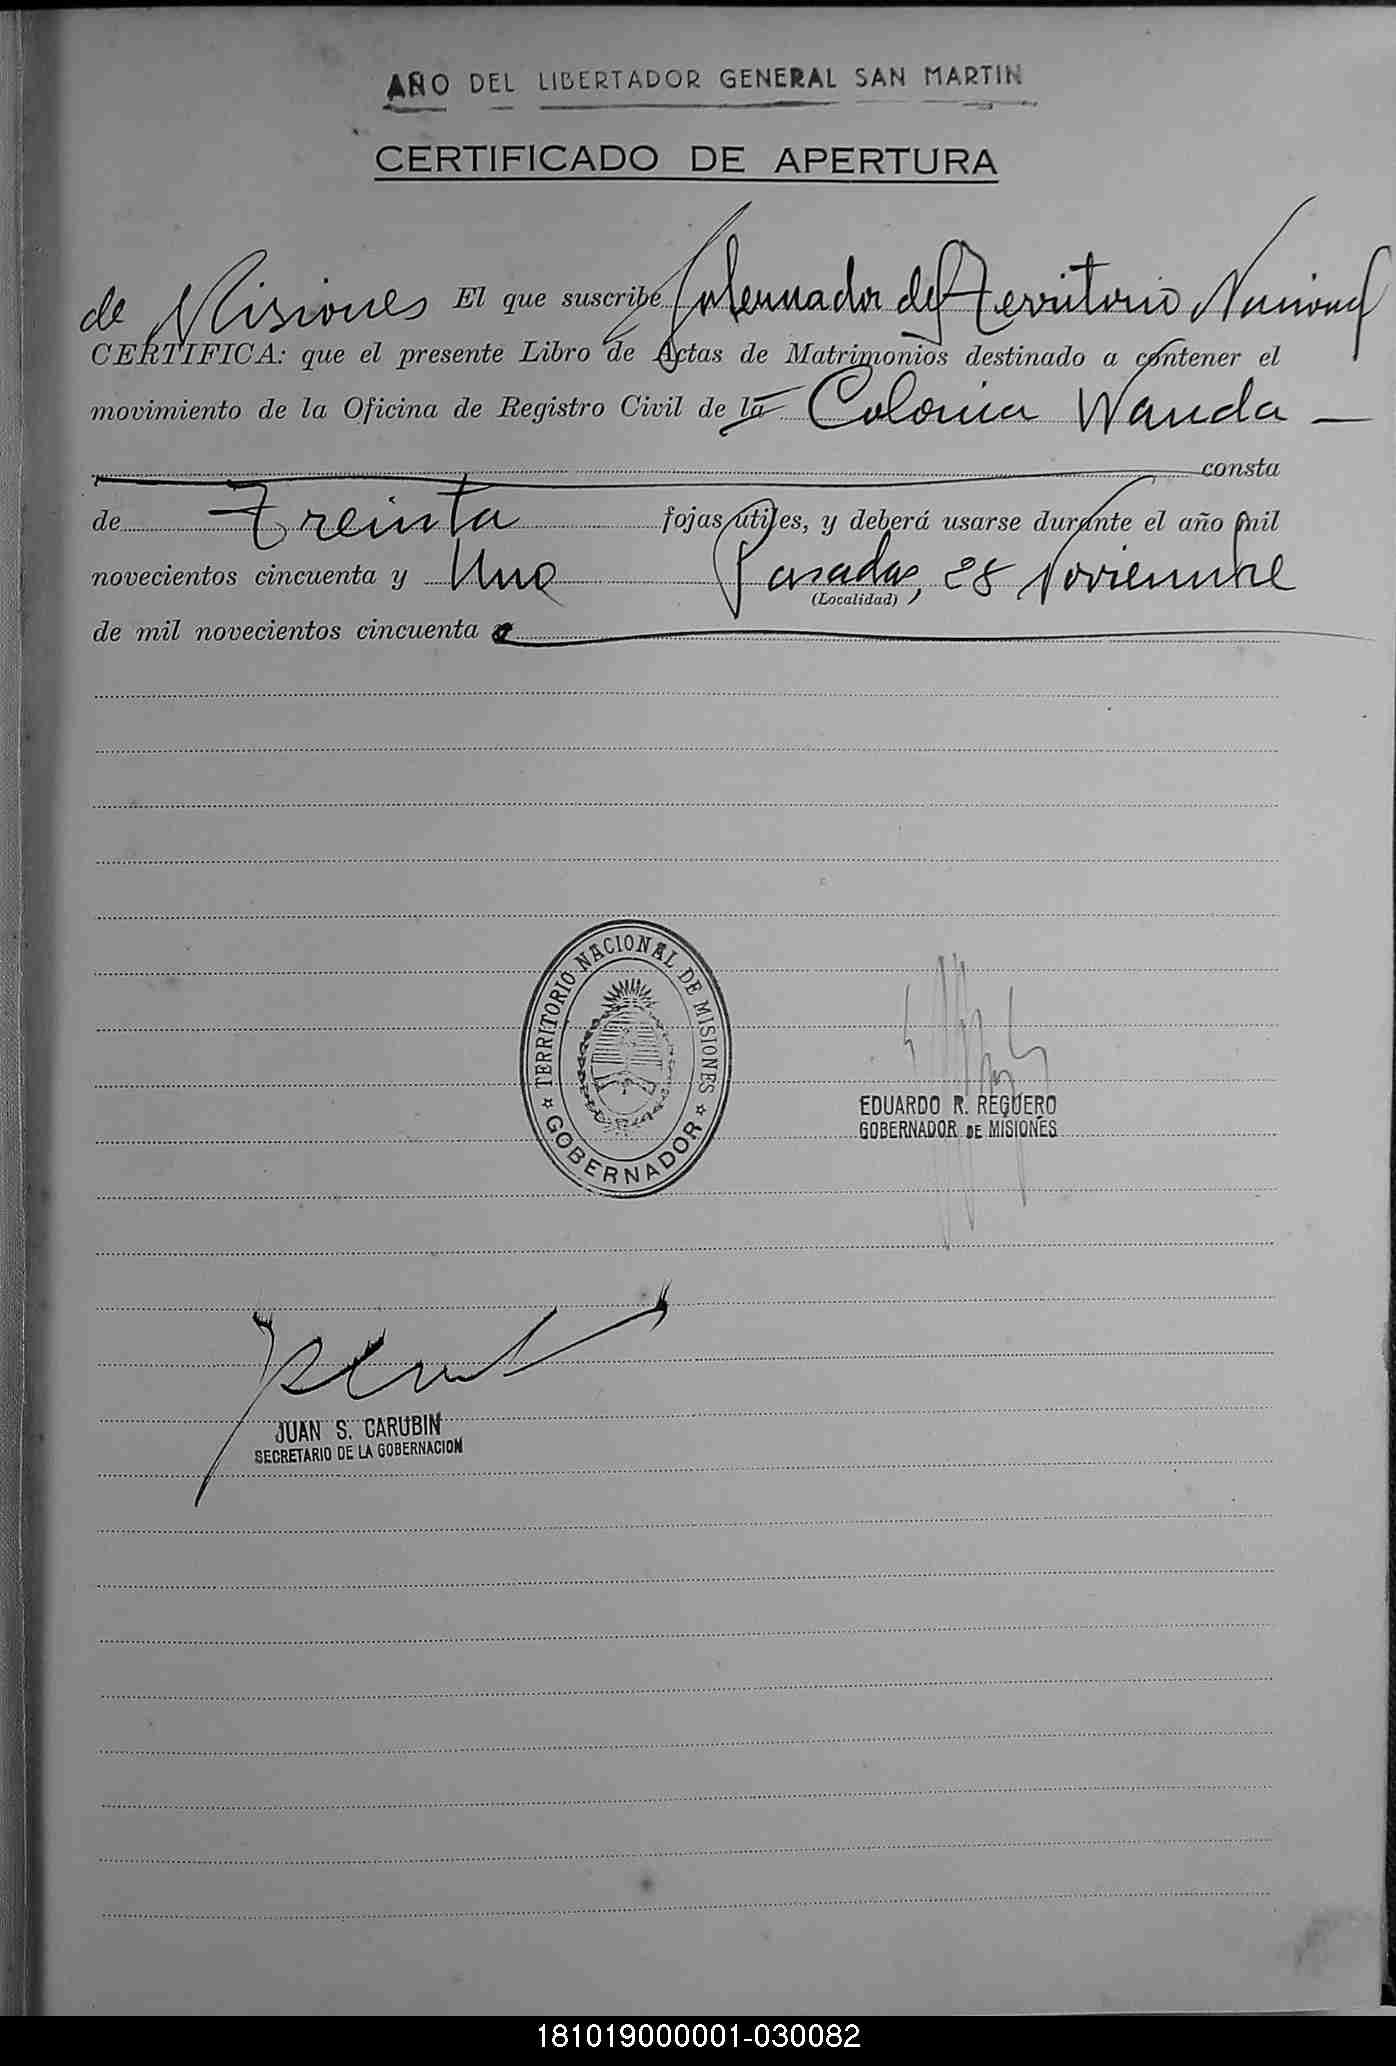 AÑO DEL LIBERTADOR GENERAL SAN MARTIN
CERTIFICADO DE APERTURA
de Misiones El que suscribe Gobernador del Territorio Nacional
CERTIFICA: que el presente Libro de Actas de Matrimonios destinado a contener el
movimiento de la Oficina de Registro Civil de la Colonia Wanda —
consta
de Treinta fojas útiles, y deberá usarse durante el año mil
novecientos cincuenta y Uno Posadas, 28 Noviembre
(Localidad)
de mil novecientos cincuenta
TERRITORIO NACIONAL DE MISIONES
GOBERNADOR
EDUARDO R. REGUERO
GOBERNADOR DE MISIONES
JUAN S. CARUBIN
SECRETARIO DE LA GOBERNACION
181019000001-030082